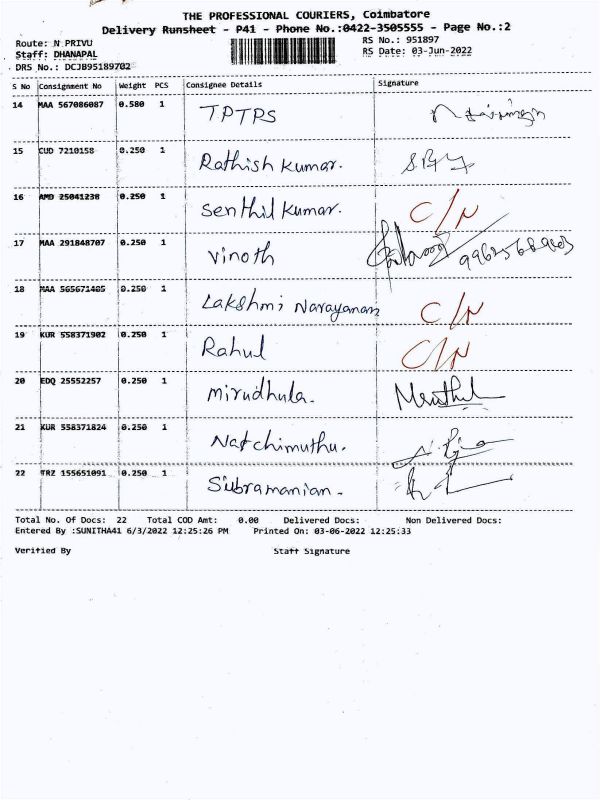 THE PROFESSIONAL COURIERS, Coimbatore
Delivery Runsheet - P41 - Phone No.:0422-3505555 - Page No.:2
Route: N PRIVU
RS No.: 951897
Staff: DHANAPAL
RS Date: 03-Jun-2022
DRS No.: DCJB95189702
S No Consignment No Weight PCS Consignee Details Signature
14 MAA 567086087 0.580 1 TPTPS
15 CUD 7210158 0.250 1 Rathish Kumar.
16 AMD 25041238 0.250 1 Senthil Kumar. C/N
17 MAA 291848707 0.250 1 Vinoth
18 MAA 565671405 0.250 1 Lakshmi Narayanan C/N
19 KUR 558371902 0.250 1 Rahul C/N
20 EDQ 25552257 0.250 1 Mirudhula.
21 KUR 558371824 0.250 1 Natchimuthu.
22 TRZ 155651091 0.250 1 Subramanian.
Total No. Of Docs: 22 Total COD Amt: 0.00 Delivered Docs: Non Delivered Docs:
Entered By :SUNITHA41 6/3/2022 12:25:26 PM Printed On: 03-06-2022 12:25:33
Verified By Staff Signature